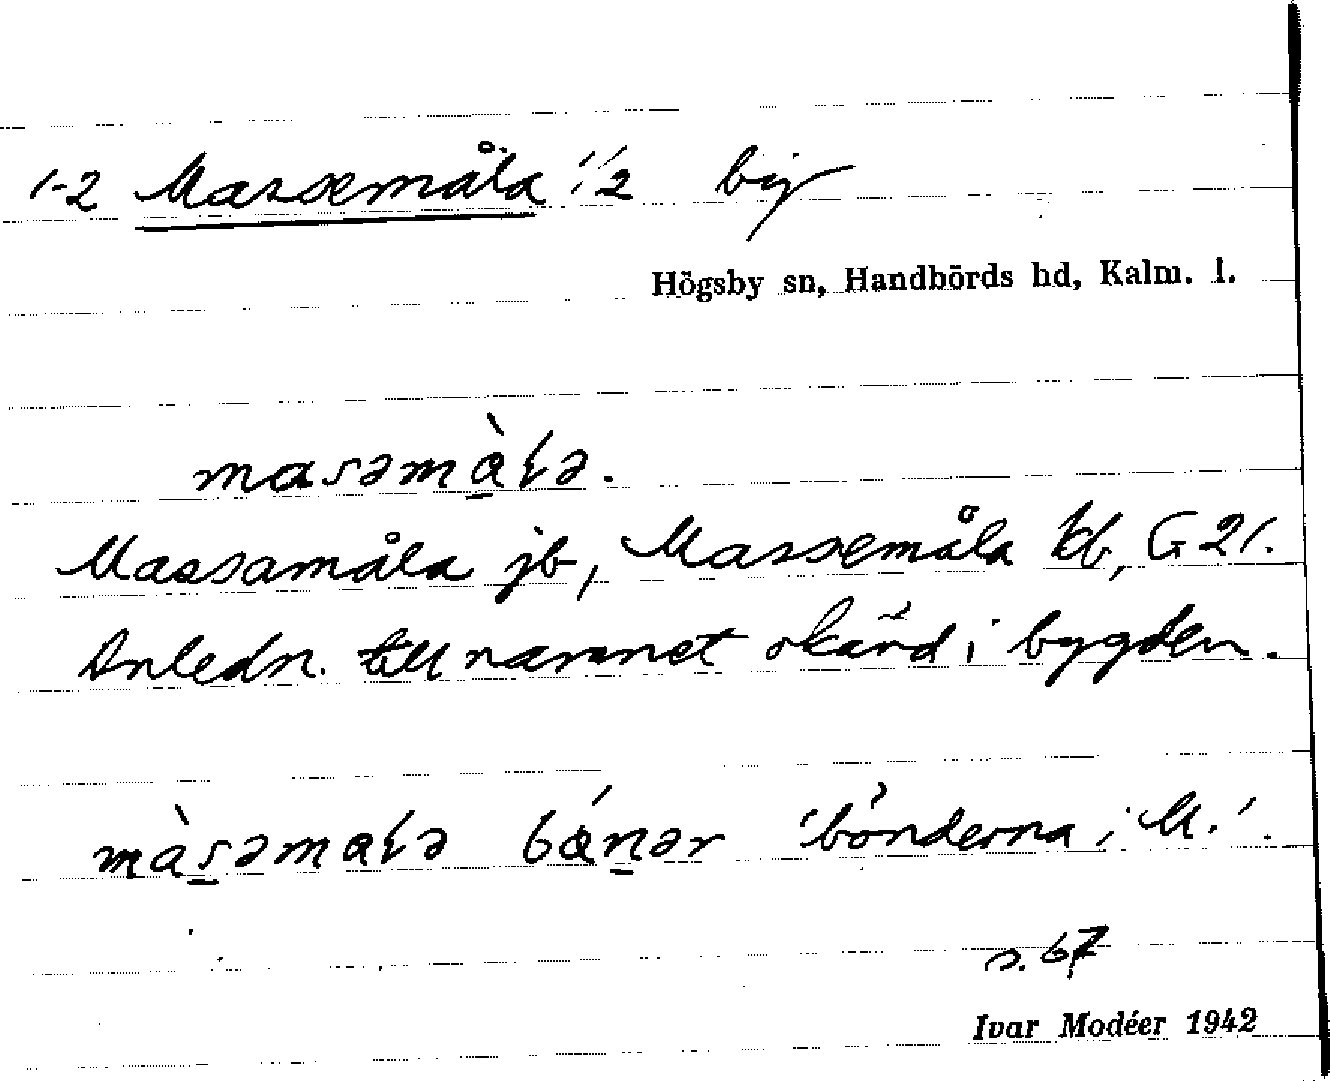 1-2 Massemåla 1/2 by
Högsby sn, Handbörds hd, Kalm. l.
masəmàlə.
Massamåla jb, Massemåla kb, G 21.
Anledn. till namnet okänd i bygden.
màsəmalə bánər 'bönderna i M.'.
s. 67
Ivar Modéer 1942